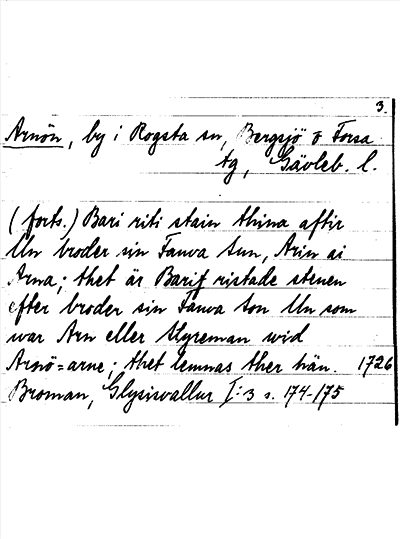 3.
Arnön, by i Rogsta sn, Bergsjö o Forsa
tg, Gävleb. l.
(forts.) Bari riti stain thina aftir
Un broder sin Fanva sun, Arin ai
Arna; thet är Barif ristade stenen
efter broder sin Fanva son Un som
war Arn eller Styreman wid
Arnö=arne; thet lemnas ther hän. 1726
Broman, Glysisvallur I:3 s. 174-175